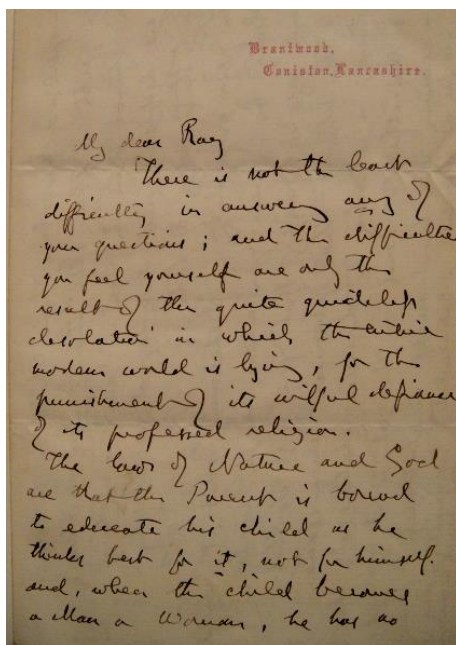 Brantwood,
Coniston, Lancashire.
My dear
There is not the least
difficulty in answering any of
your questions; and the difficulties
you feel yourself are only the
result of the quite guideless
desolation in which the entire
modern world is lying, for the
punishment of its wilful defiance
of its professed religion.
The laws of Nature and God
are that the Parent is bound
to educate his child as he
thinks best for it, not for himself.
and, when the child becomes
a Man or Woman, he has no